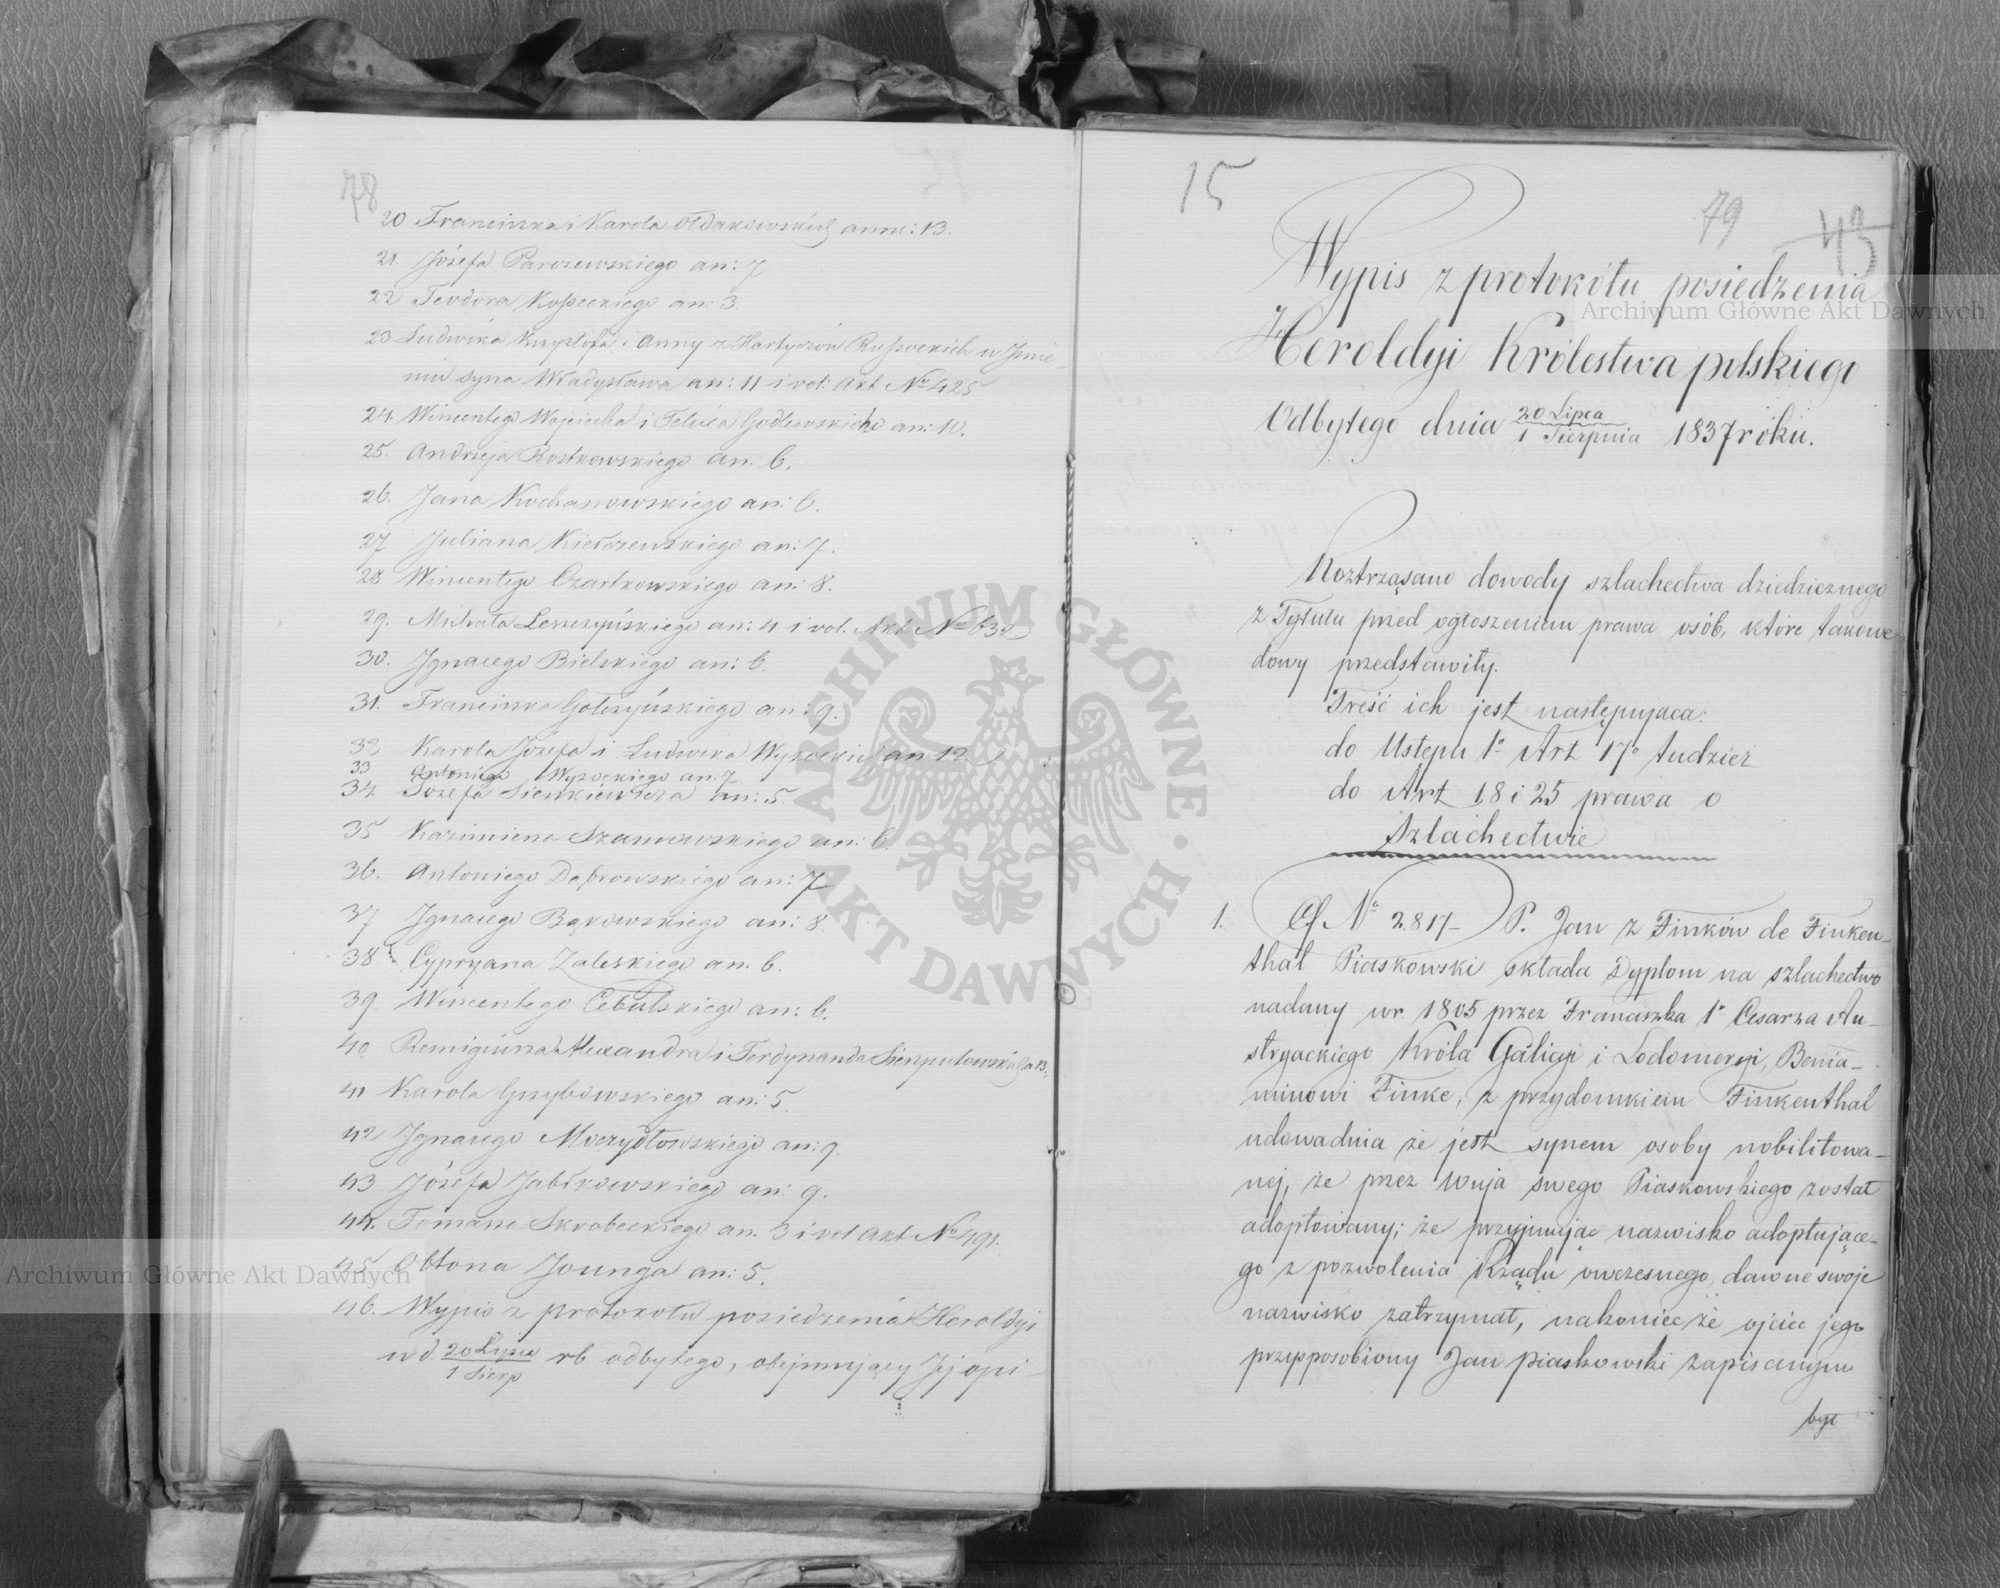 78
20 Franciszka i Karola Ołdakowskich annex: 13.
21. Józefa Parczewskiego an: 7
22 Teodora Kosseckiego an: 3.
23. Ludwika Krysztofa i Anny z Hartyczów Russockich w Imie-
niu syna Władysława an: 11 i vol: Akt No 425
24. Wincentego Wojciecha i Felixa Godlewskich an: 10.
25. Andrzeja Rostkowskiego an: 6.
26. Jana Kochanowskiego an: 6.
27 Juliana Kiełczewskiego an: 7.
28 Wincentego Czartkowskiego an: 8.
29. Michała Leszczyńskiego an: 4 i vol. Akt No
30. Ignacego Bielskiego an: 6.
31. Franciszka Gołczyńskiego an: 9.
32 Karola Józefa i Ludwika Wysockich an 12
33 Antoniego Wysockiego an. 7
34. Józefa Sienkiewicza an: 5.
35 Kazimierza Szamowskiego an: 6.
36. Antoniego Dąbrowskiego an: 7
37 Ignacego Bąkowskiego an: 8.
38 Cypryana Zaleskiego an. 6.
39. Wincentego Cebulskiego an: 6.
40 Remigiusza Alexandra i Ferdynanda Sierputowskich a 13.
41 Karola Grzybowskiego an: 5.
42 Ignacego Moczydłowskiego an: 9.
43 Józefa Jabłkowskiego an: 9.
44. Tomasza Skrobeckiego an. 3 i vol Akt No 491.
45. Ottona Jounga an: 5.
46. Wypis z protokołu posiedzenia Heroldyi
w d. 20 Lipca / 1 Sierp rb odbytego, obejmujący Jej opi-
15
79
43
Wypis z protokółu posiedzenia
Heroldyi Królestwa polskiego
Odbytego dnia 20 Lipca / 1 Sierpnia 1837 roku.
Roztrząsano dowody szlachectwa dziedzicznego
z Tytułu przed ogłoszeniem prawa osób, które takowe
dowy przedstawiły.
Treść ich jest następująca:
do Ustępu 1o Art 17o tudzież
do Art 18 i 25 prawa o
Szlachectwie
1. Of No 2817 – P. Jan z Finków de Finken-
thal Piaskowski składa Dyplom na szlachectwo
nadany w r. 1805 przez Franciszka 1o Cesarza Au-
stryackiego Króla Galicyi i Lodomeryi, Benia-
minowi Finke, z przydomkiem Finkenthal
udowadnia że jest synem osoby nobilitowa-
nej, że przez wuja swego Piaskowskiego został
adoptowany; że przyjmując nazwisko adoptujące-
go z pozwolenia Rządu owczesnego, dawne swoje
nazwisko zatrzymał, nakoniec że ojciec jego
przysposobiony Jan Piaskowski zapisanym
był
Archiwum Główne Akt Dawnych
Archiwum Główne Akt Dawnych
ARCHIWUM GŁÓWNE AKT DAWNYCH